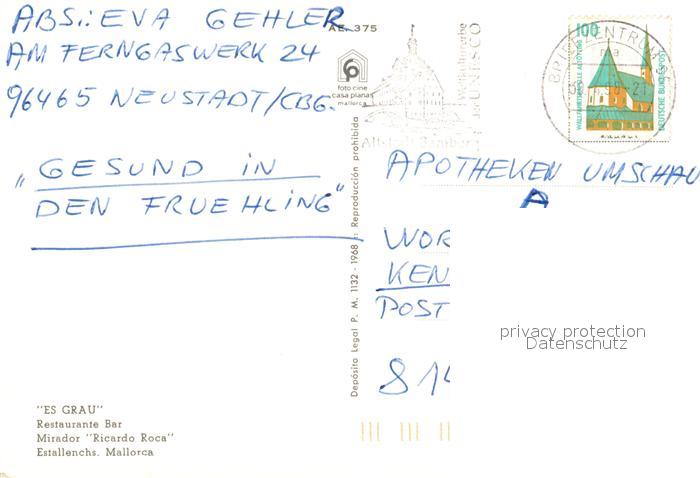 ABS.: EVA GEHLER
AM FERNGASWERK 24
96465 NEUSTADT/CBG.
"GESUND IN
DEN FRUEHLING"
"ES GRAU"
Restaurante Bar
Mirador "Ricardo Roca"
Estallenchs. Mallorca
AE. 375
foto cine
casa planas
mallorca
Depósito Legal P. M. 1132 - 1968 :: Reproducción prohibida
UNESCO
Altstadt Bamberg
BRIEFZENTRUM
100
WALLFAHRTSKAPELLE ALTÖTTING
DEUTSCHE BUNDESPOST
APOTHEKEN UMSCHAU
A
WOR
KEN
POST
81
privacy protection
Datenschutz